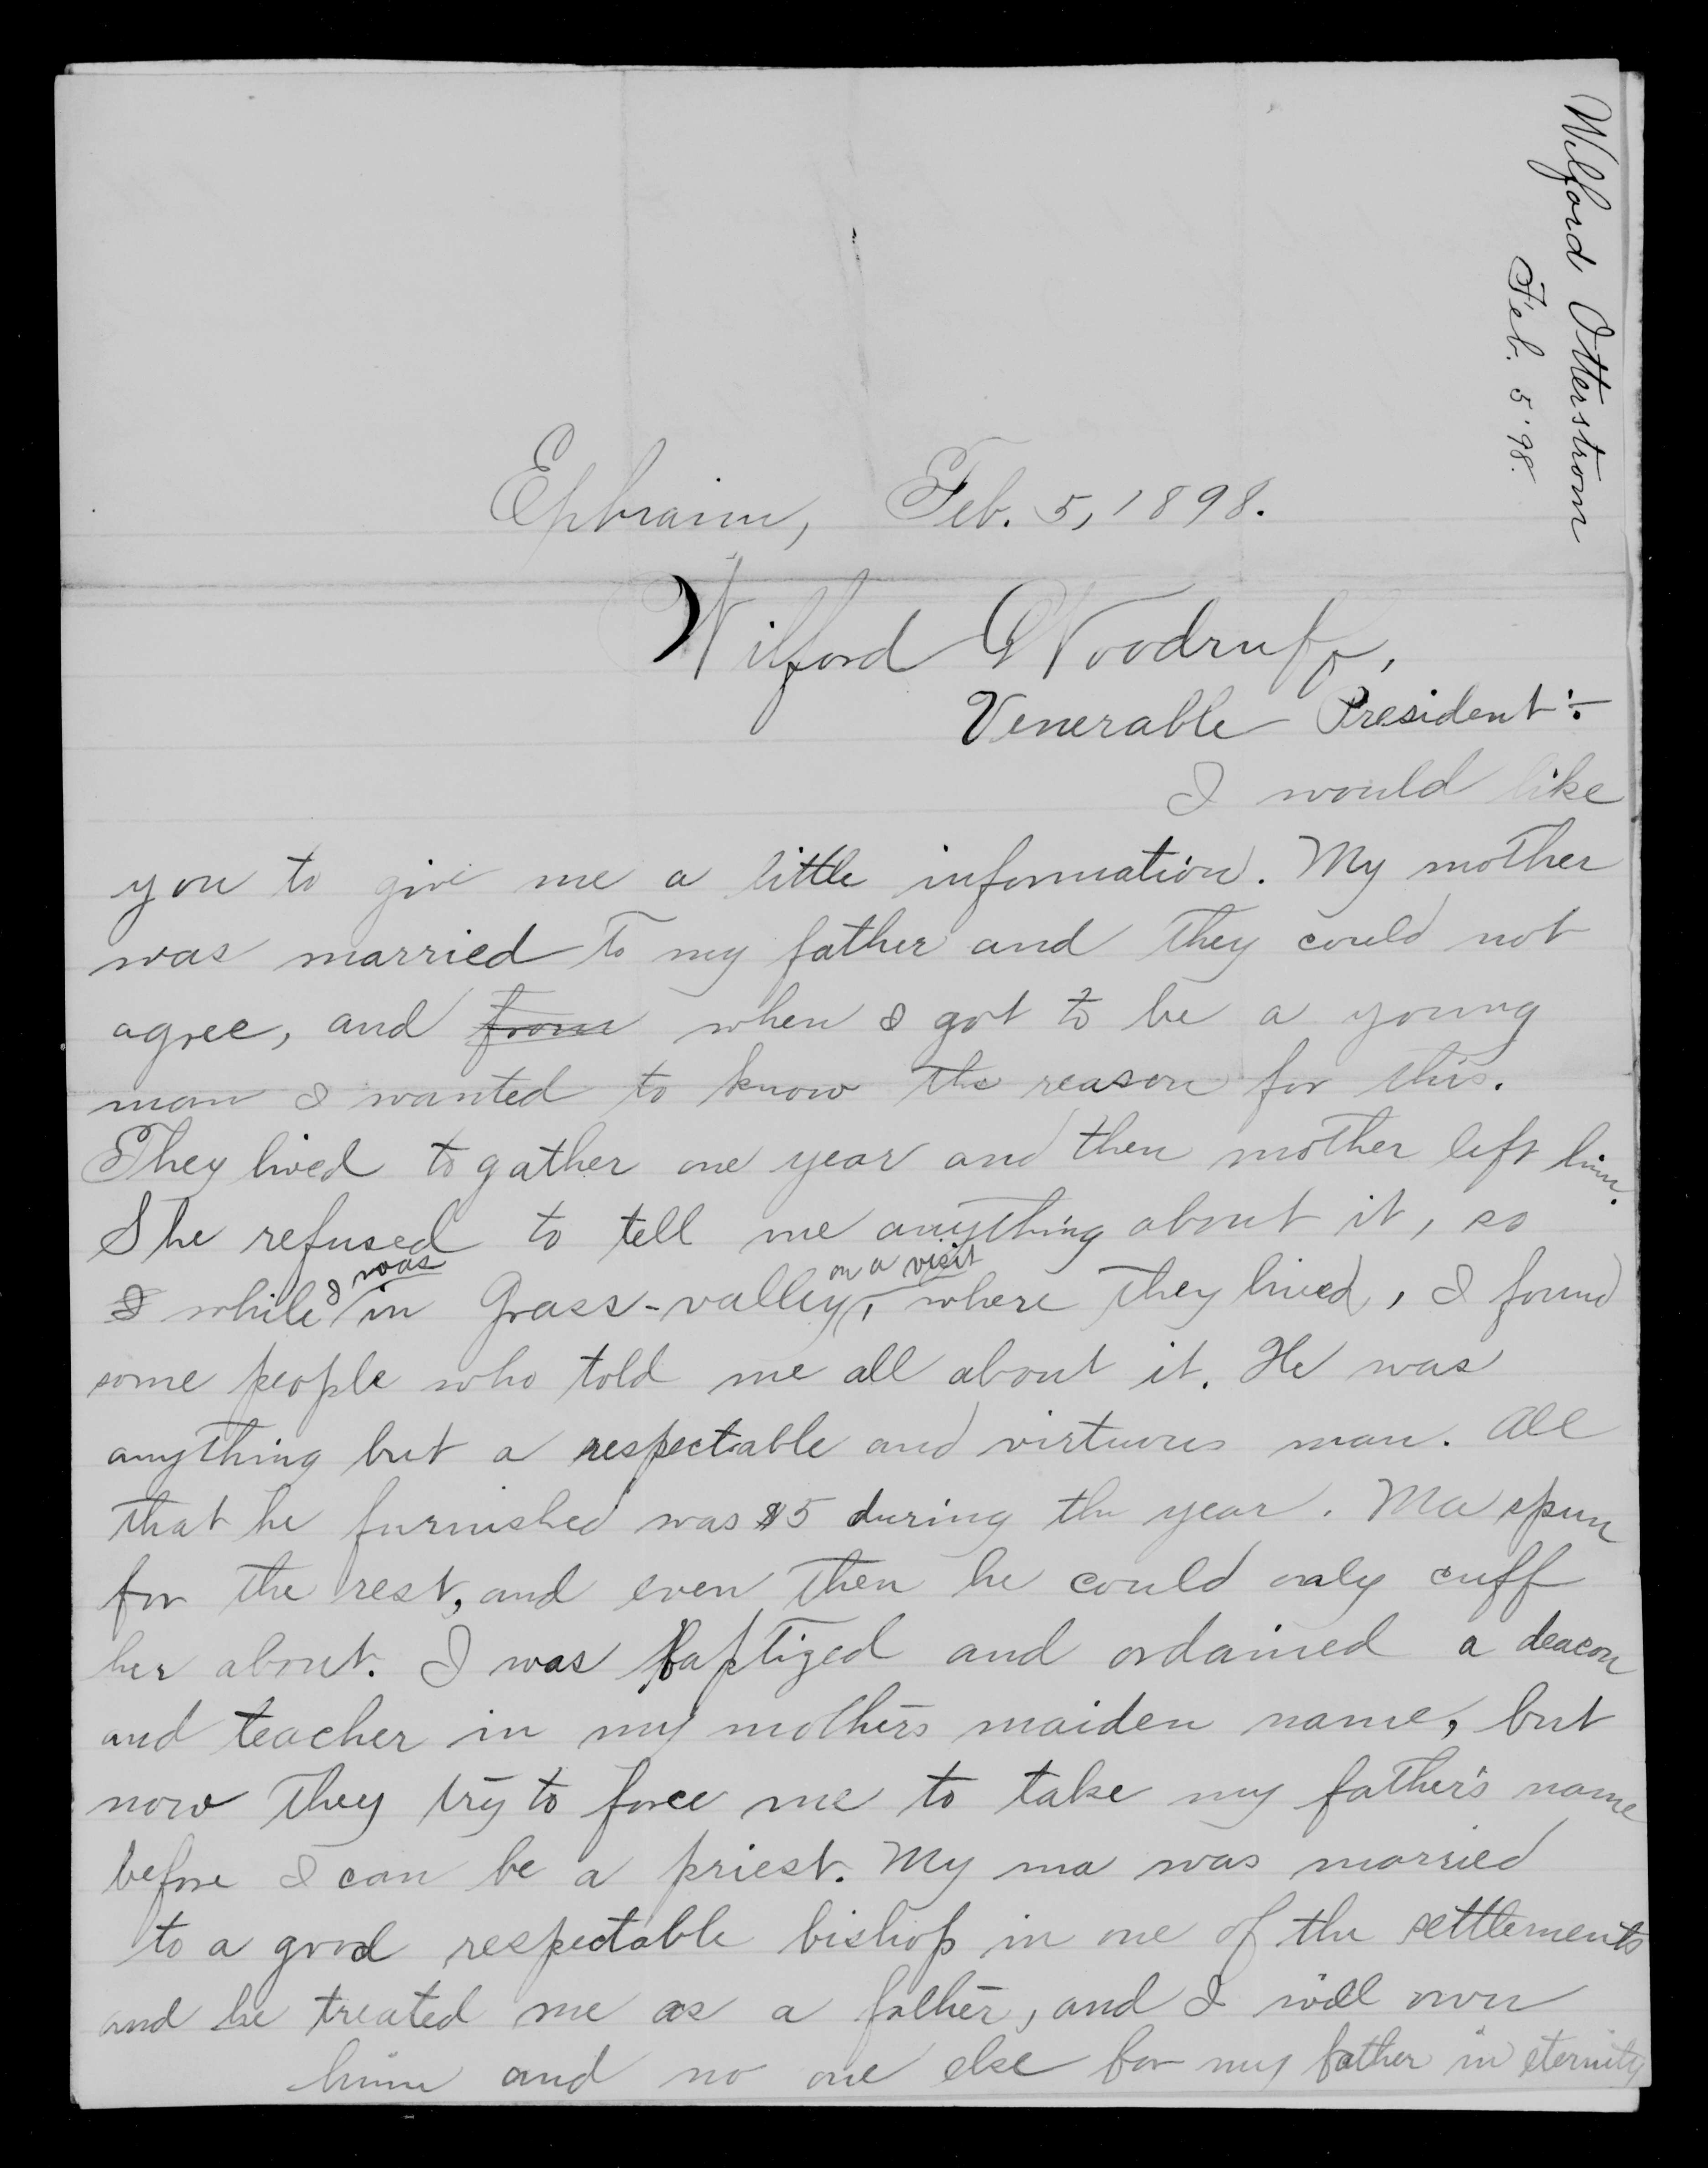 Wilford Otterstrom
Feb. 5 '98.
Ephraim, Feb. 5, 1898.
Wilford Woodruff,
Venerable President:-
I would like
you to give me a little information. My mother
was married to my father and they could not
agree, and from when I got to be a young
man I wanted to know the reason for this.
They lived togather one year and then mother left him.
She refused to tell me anything about it, so
I was on a visit
I while in Grass-valley, where they lived, I found
some people who told me all about it. He was
anything but a respectable and virtuous man. All
that he furnished was $5 during the year. Ma spun
for the rest, and even then he could only cuff
her about. I was baptized and ordained a deacon
and teacher in my mother's maiden name, but
now they try to force me to take my father's name
before I can be a priest. My ma was married
to a good respectable bishop in one of the settlements
and he treated me as a father, and I will own
him and no one else for my father in eternity